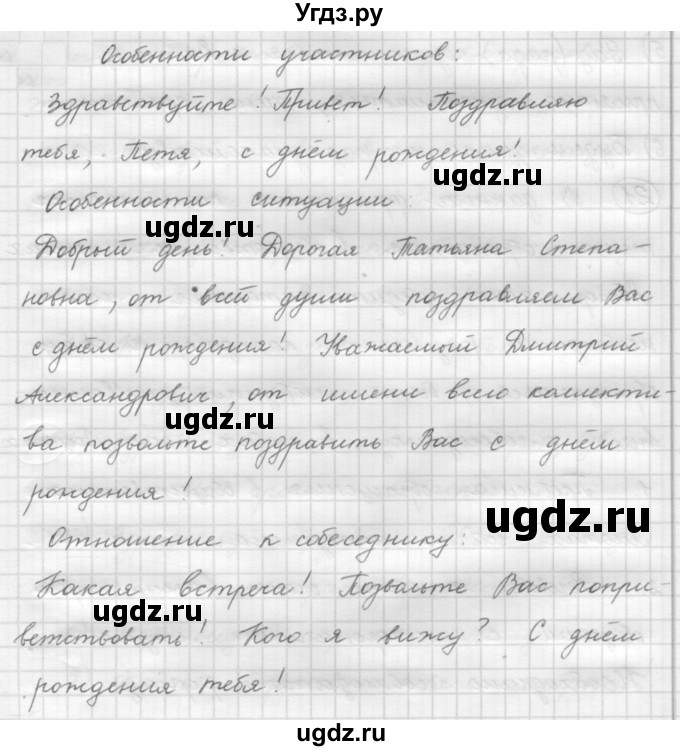 Угдз.ру
Особенности участников:
Здравствуйте! Привет! Поздравляю
тебя, Петя, с днём рождения!
ugdz.ru
Особенности ситуации:
ugdz.ru
Добрый день! Дорогая Татьяна Степа-
новна, от всей души поздравляем Вас
с днём рождения! Уважаемый Дмитрий
Александрович, от имени всего коллекти-
ugdz.ru
ва позвольте поздравить Вас с днём
рождения!
ugdz.ru
Отношение к собеседнику:
Какая встреча! Позвольте Вас попри-
ugdz.ru
ветствовать! Кого я вижу? С днём
рождения тебя!
ugdz.ru